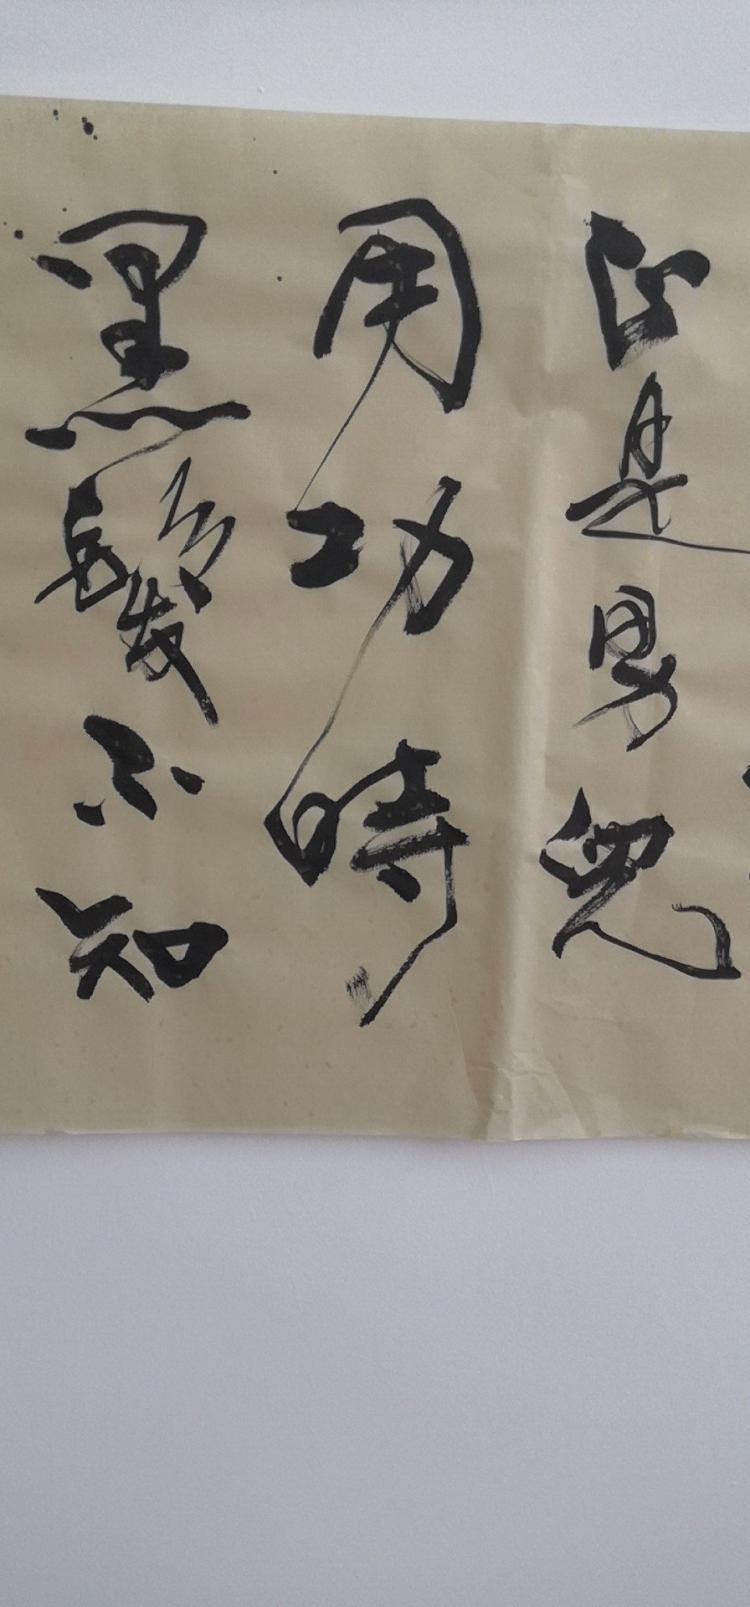 正是男兒
用功時
黑髮不知